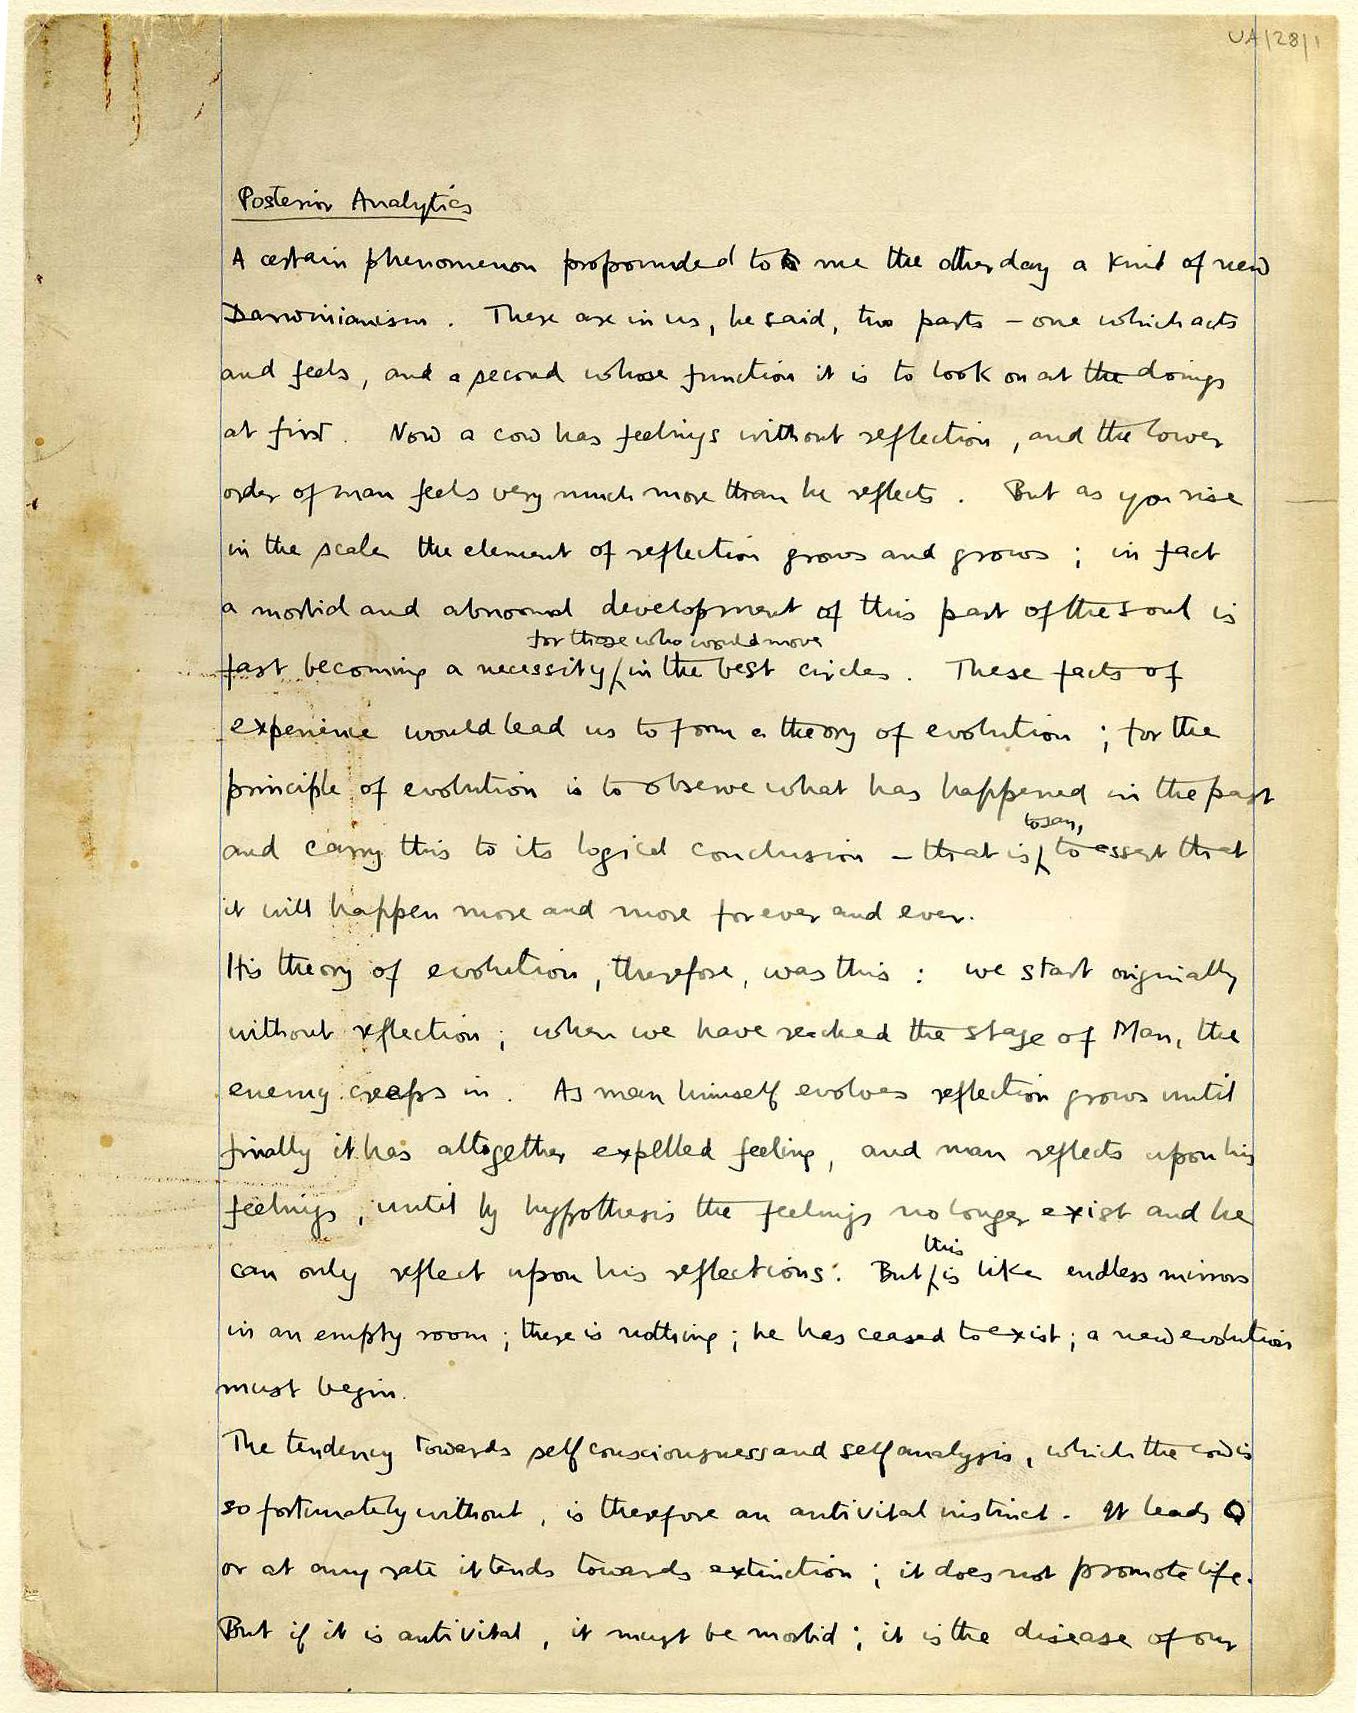 UA/28/1
Posterior Analytics
A certain phenomenon propounded to me the other day a kind of new
Darwinianism. There are in us, he said, two parts – one which acts
and feels, and a second whose function it is to look on at the doings
at first. Now a cow has feelings without reflection, and the lower
order of man feels very much more than he reflects. But as you rise
in the scale the element of reflection grows and grows; in fact
a morbid and abnormal development of this part of the soul is
for those who would move
fast becoming a necessity in the best circles. These facts of
experience would lead us to form a theory of evolution; for the
principle of evolution is to observe what has happened in the past
to say,
and carry this to its logical conclusion – that is to assert that
it will happen more and more for ever and ever.
His theory of evolution, therefore, was this: we start originally
without reflection; when we have reached the stage of Man, the
enemy creeps in. As man himself evolves reflection grows until
finally it has altogether expelled feeling, and man reflects upon his
feelings, until by hypothesis the feelings no longer exist and he
this
can only reflect upon his reflections. But is like endless mirrors
in an empty room; there is nothing; he has ceased to exist; a new evolution
must begin.
The tendency towards selfconsciousness and selfanalysis, which the cow is
so fortunately without, is therefore an antivital instinct. It leads
or at any rate it tends towards extinction; it does not promote life.
But if it is antivital, it must be morbid; it is the disease of our